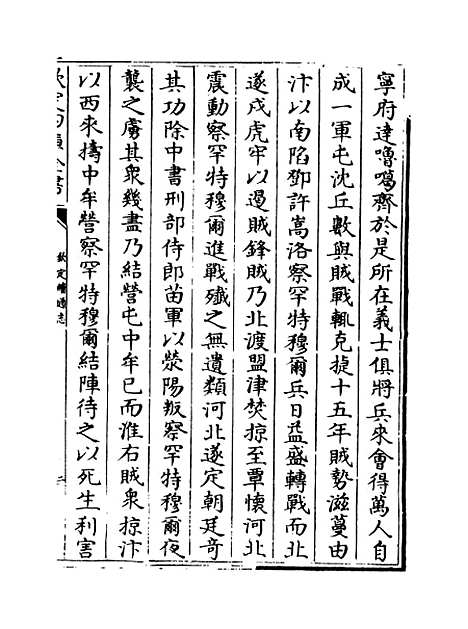 寧府達嚕噶齊於是所在義士俱將兵來會得萬人自
成一軍屯沈丘數與賊戰輒克捷十五年賊勢滋蔓由
汴以南陷鄧許嵩洛察罕特穆爾兵日益盛轉戰而北
遂戍虎牢以遏賊鋒賊乃北渡盟津焚掠至覃懷河北
震動察罕特穆爾進戰殲之無遺類河北遂定朝廷奇
其功除中書刑部侍郎苗軍以滎陽叛察罕特穆爾夜
襲之虜其衆幾盡乃結營屯中牟已而淮右賊衆掠汴
以西來擣中牟營察罕特穆爾結陣待之以死生利害
欽定四庫全書
欽定續通志